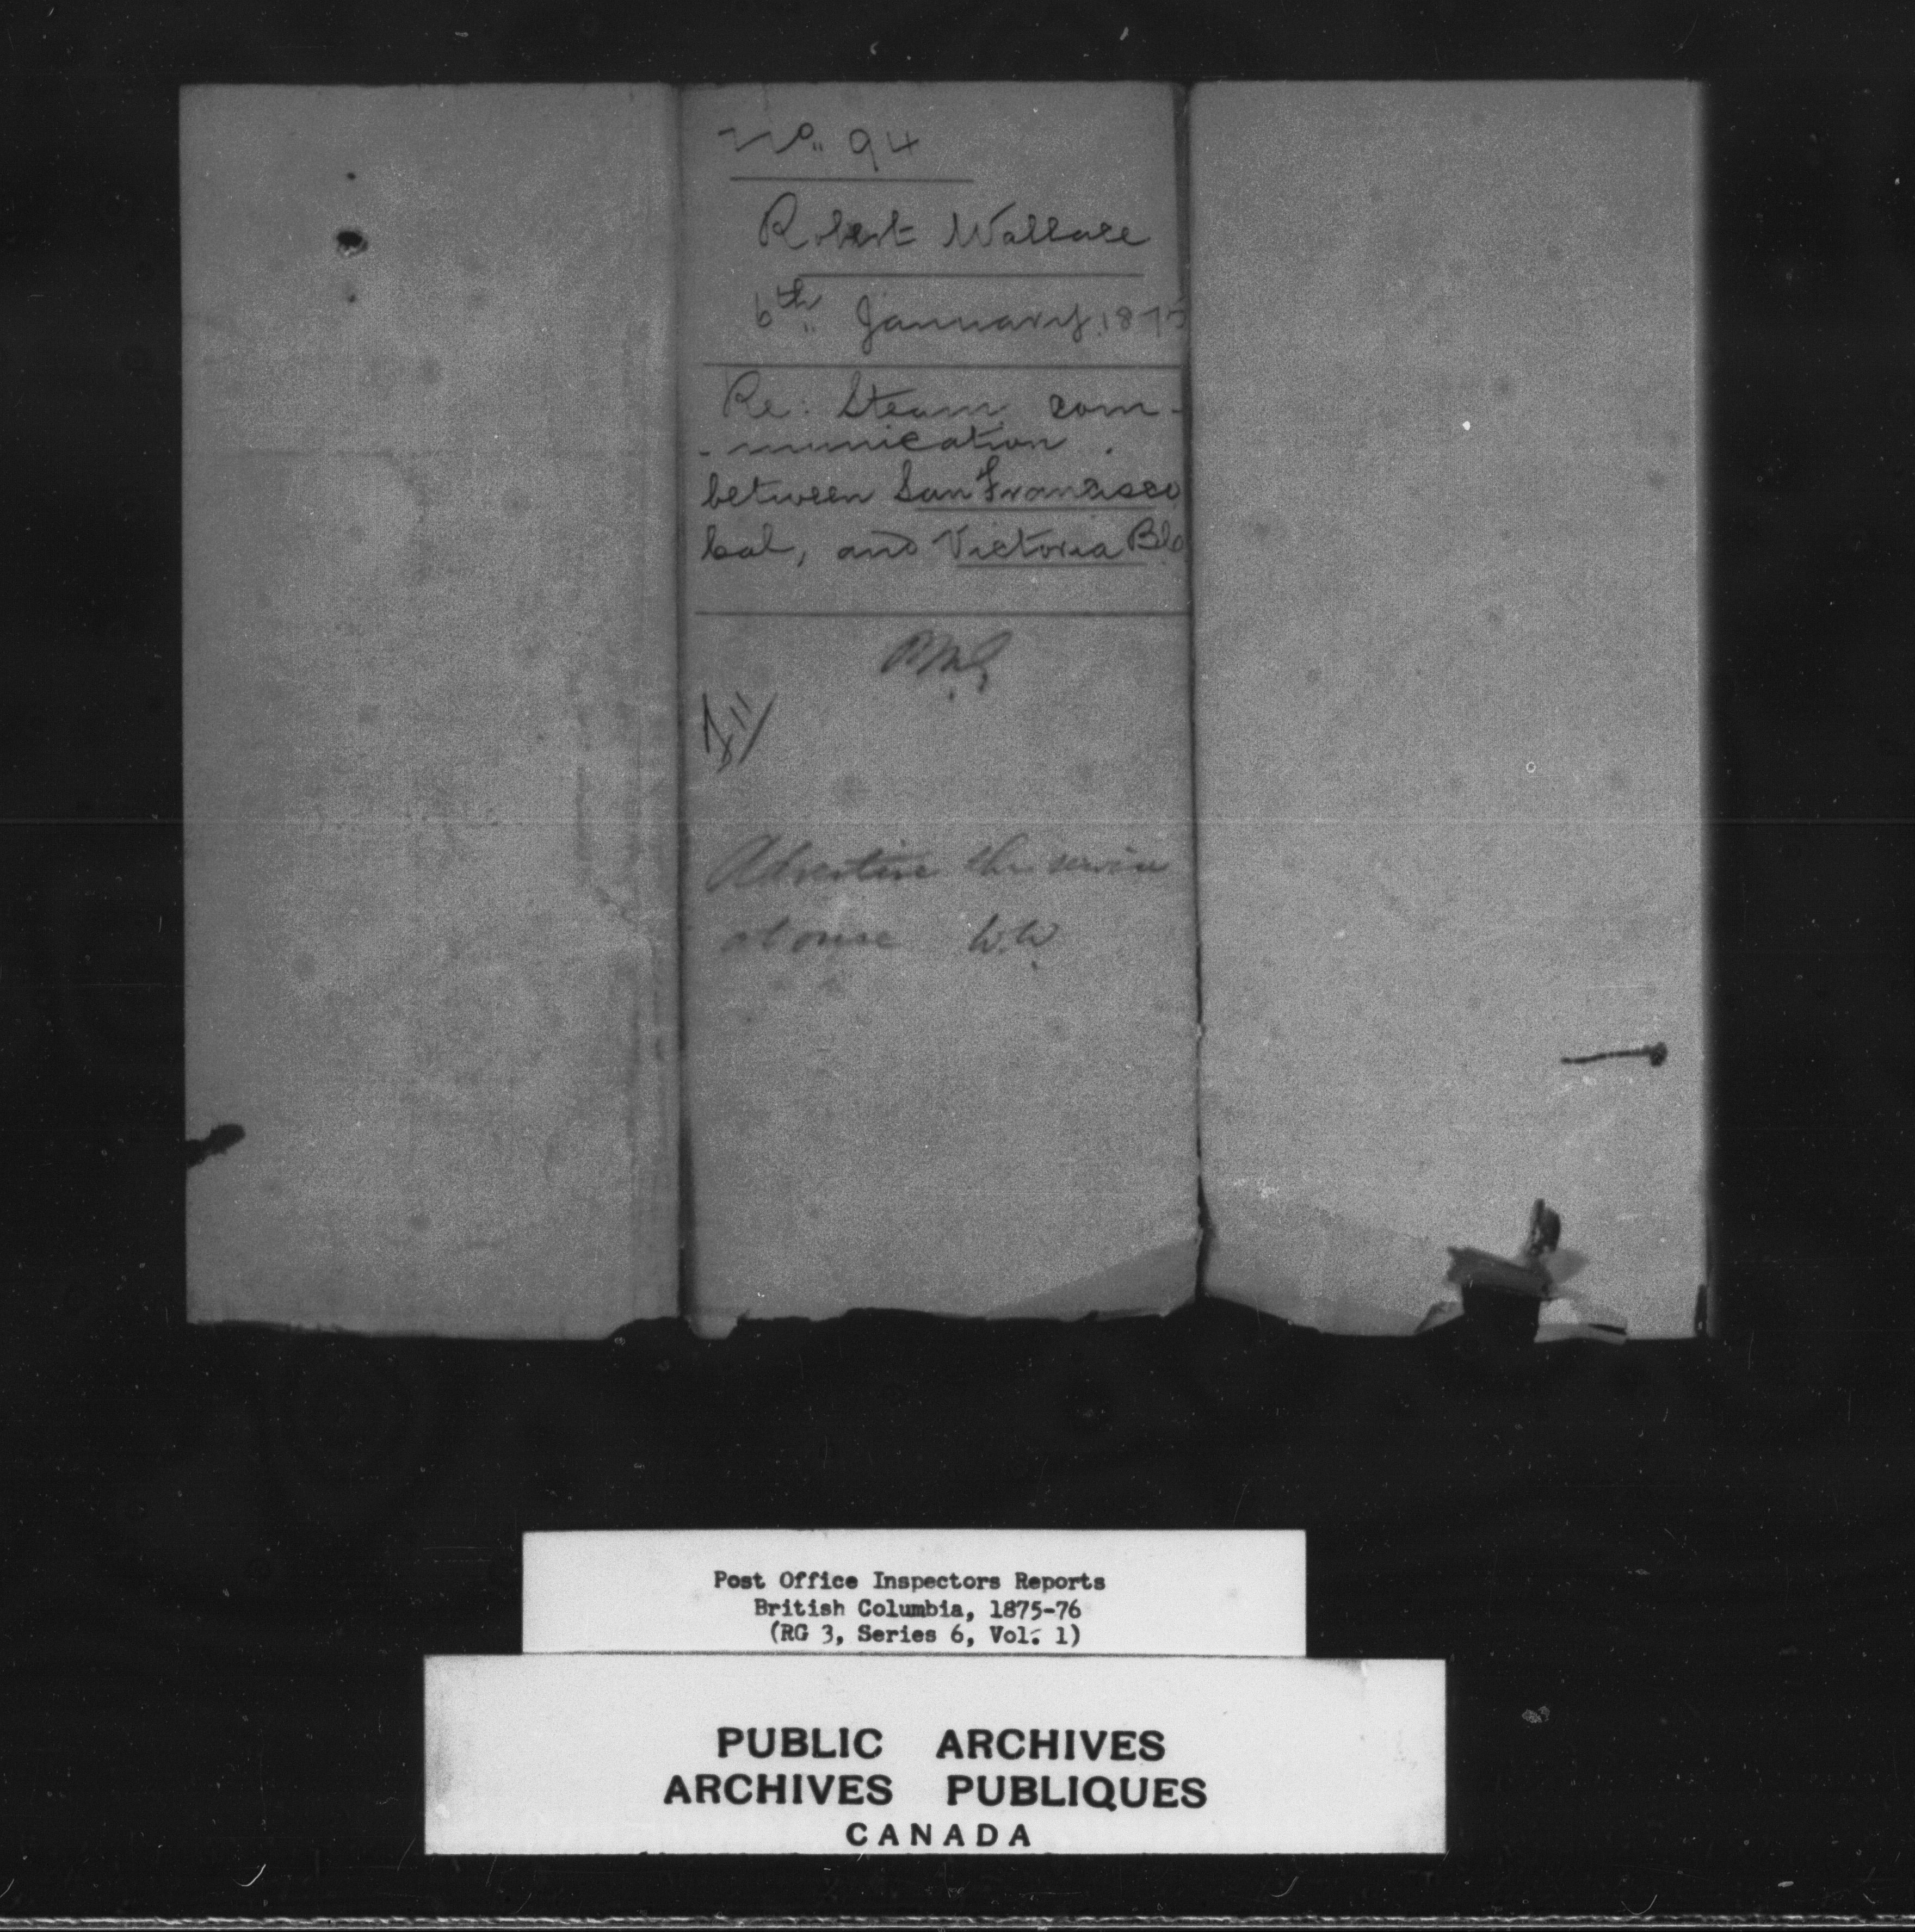 No. 94
Robert Wallace
6th January 1875
Re: Steam com-
-munication
between San Francisco
Cal, and Victoria BC
PMG
Advertise this service
at once W.W.
Post Office Inspectors Reports
British Columbia, 1875-76
(RG 3, Series 6, Vol. 1)
PUBLIC ARCHIVES
ARCHIVES PUBLIQUES
CANADA